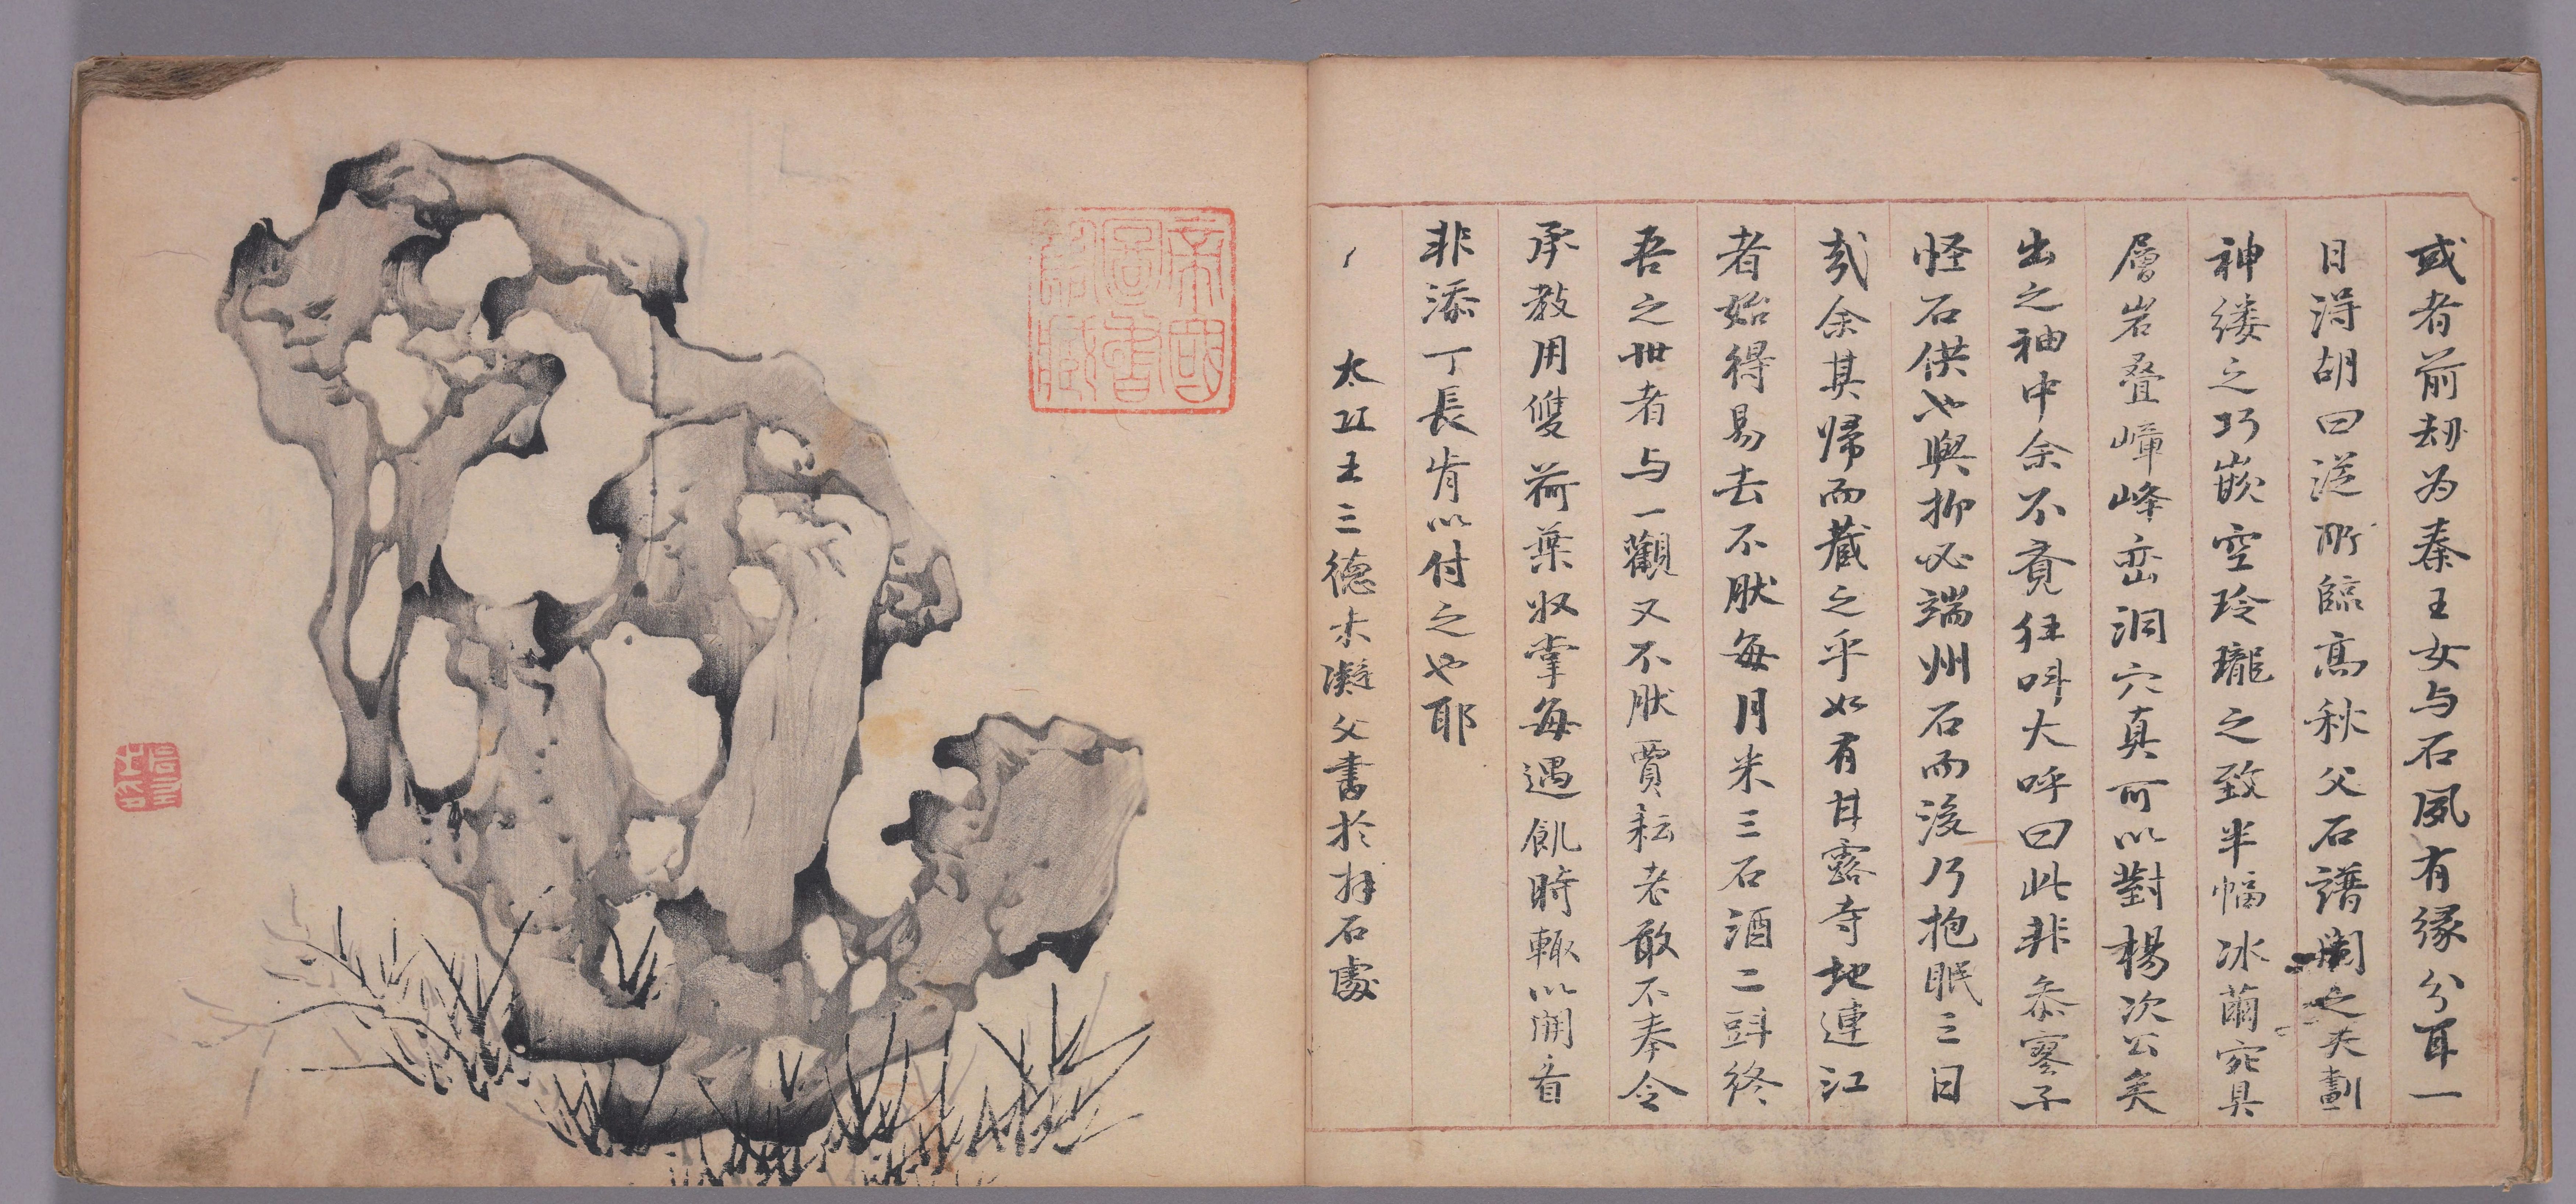 或者前劫为秦王女与石夙有缘分耳一
日淂胡曰從所臨髙秋父石譜閱之夫劃
神缕之巧嵌空玲瓏之致半幅冰繭宛具
層岩叠嶂峰峦洞穴真可以對楊次公矣
出之袖中余不覺狂呌大呼曰此非叅寥子
怪石供也與抑必端州石而後乃抱眠三日
㢤余其歸而藏之乎如有甘露寺地連江
者始得易去不肰每月米三石酒二㪷終
吾之丗者与一觀又不肰賈耘老敢不奉令
承教用雙荷葉収掌每遇飢時輙以開看
非添丁長肯以付之也耶
太丘王三德未凝父書於拜石處
帝國
圖書
館藏